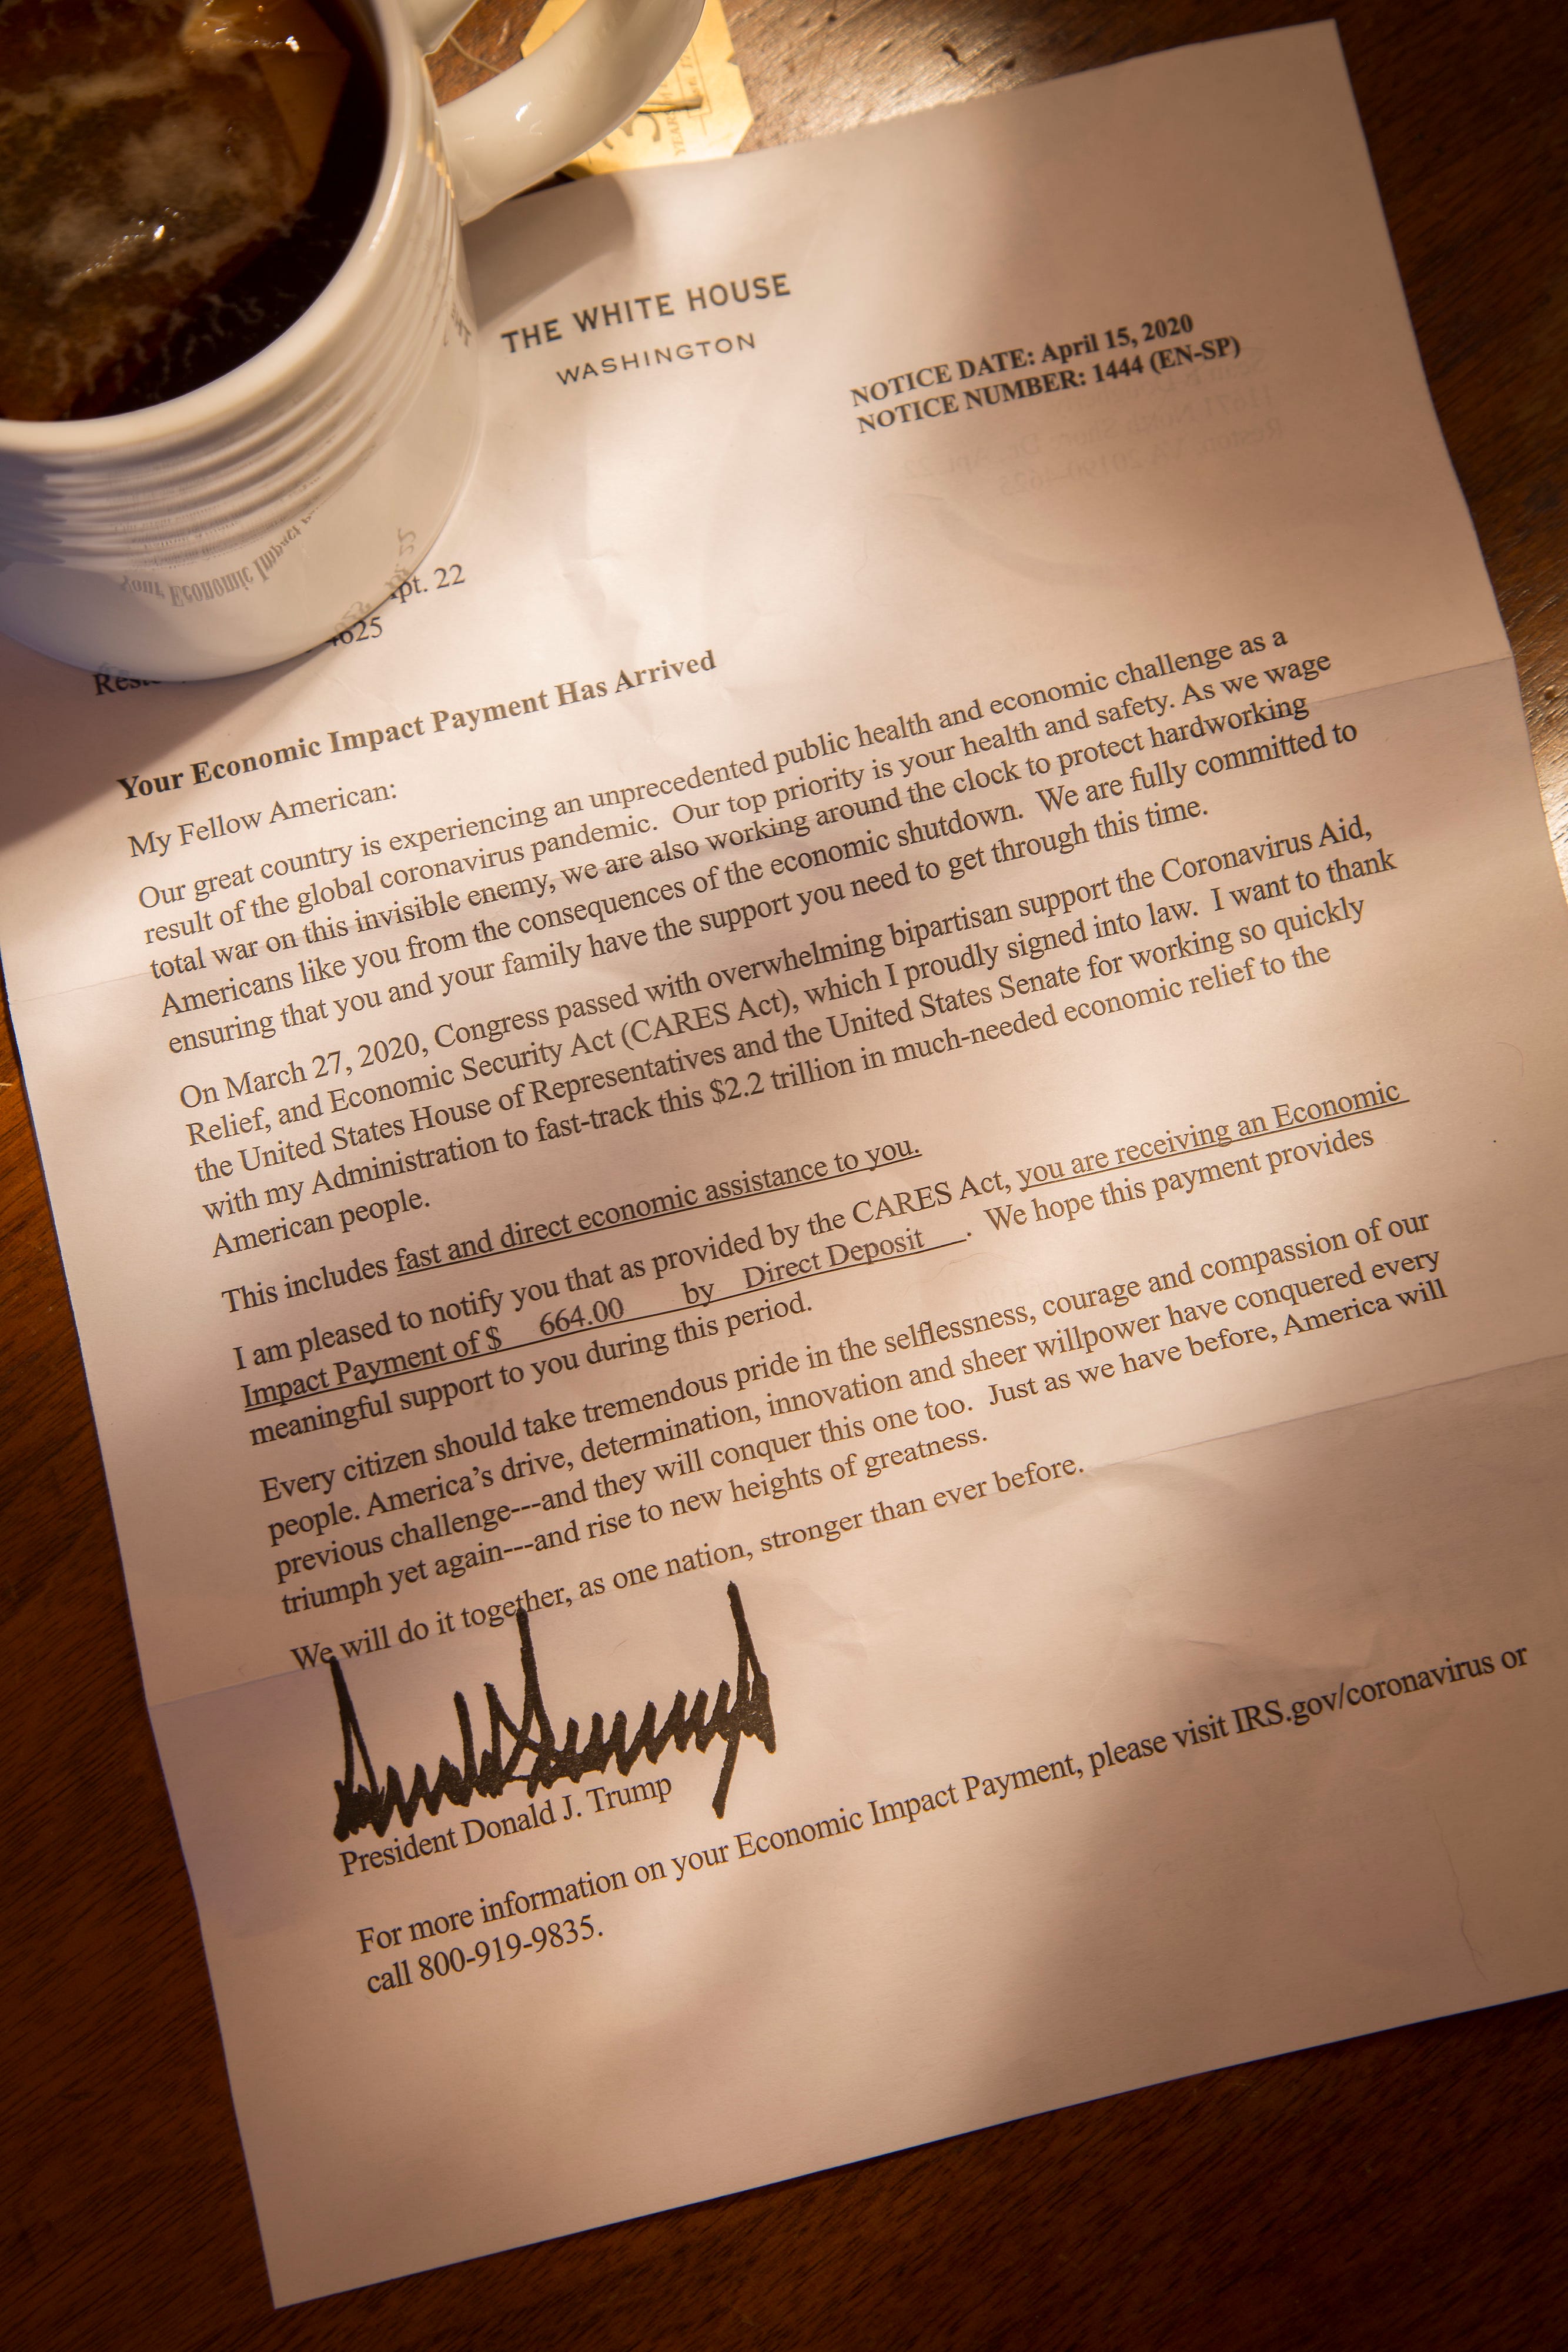 THE WHITE HOUSE
WASHINGTON
NOTICE DATE: April 15, 2020
NOTICE NUMBER: 1444 (EN-SP)
pt. 22
4625
Your Economic Impact Payment Has Arrived
My Fellow American:
Our great country is experiencing an unprecedented public health and economic challenge as a
result of the global coronavirus pandemic. Our top priority is your health and safety. As we wage
total war on this invisible enemy, we are also working around the clock to protect hardworking
Americans like you from the consequences of the economic shutdown. We are fully committed to
ensuring that you and your family have the support you need to get through this time.
On March 27, 2020, Congress passed with overwhelming bipartisan support the Coronavirus Aid,
Relief, and Economic Security Act (CARES Act), which I proudly signed into law. I want to thank
the United States House of Representatives and the United States Senate for working so quickly
with my Administration to fast-track this $2.2 trillion in much-needed economic relief to the
American people.
This includes fast and direct economic assistance to you.
I am pleased to notify you that as provided by the CARES Act, you are receiving an Economic
Impact Payment of $ 664.00 by Direct Deposit. We hope this payment provides
meaningful support to you during this period.
Every citizen should take tremendous pride in the selflessness, courage and compassion of our
people. America's drive, determination, innovation and sheer willpower have conquered every
previous challenge---and they will conquer this one too. Just as we have before, America will
triumph yet again---and rise to new heights of greatness.
We will do it together, as one nation, stronger than ever before.
President Donald J. Trump
For more information on your Economic Impact Payment, please visit IRS.gov/coronavirus or
call 800-919-9835.